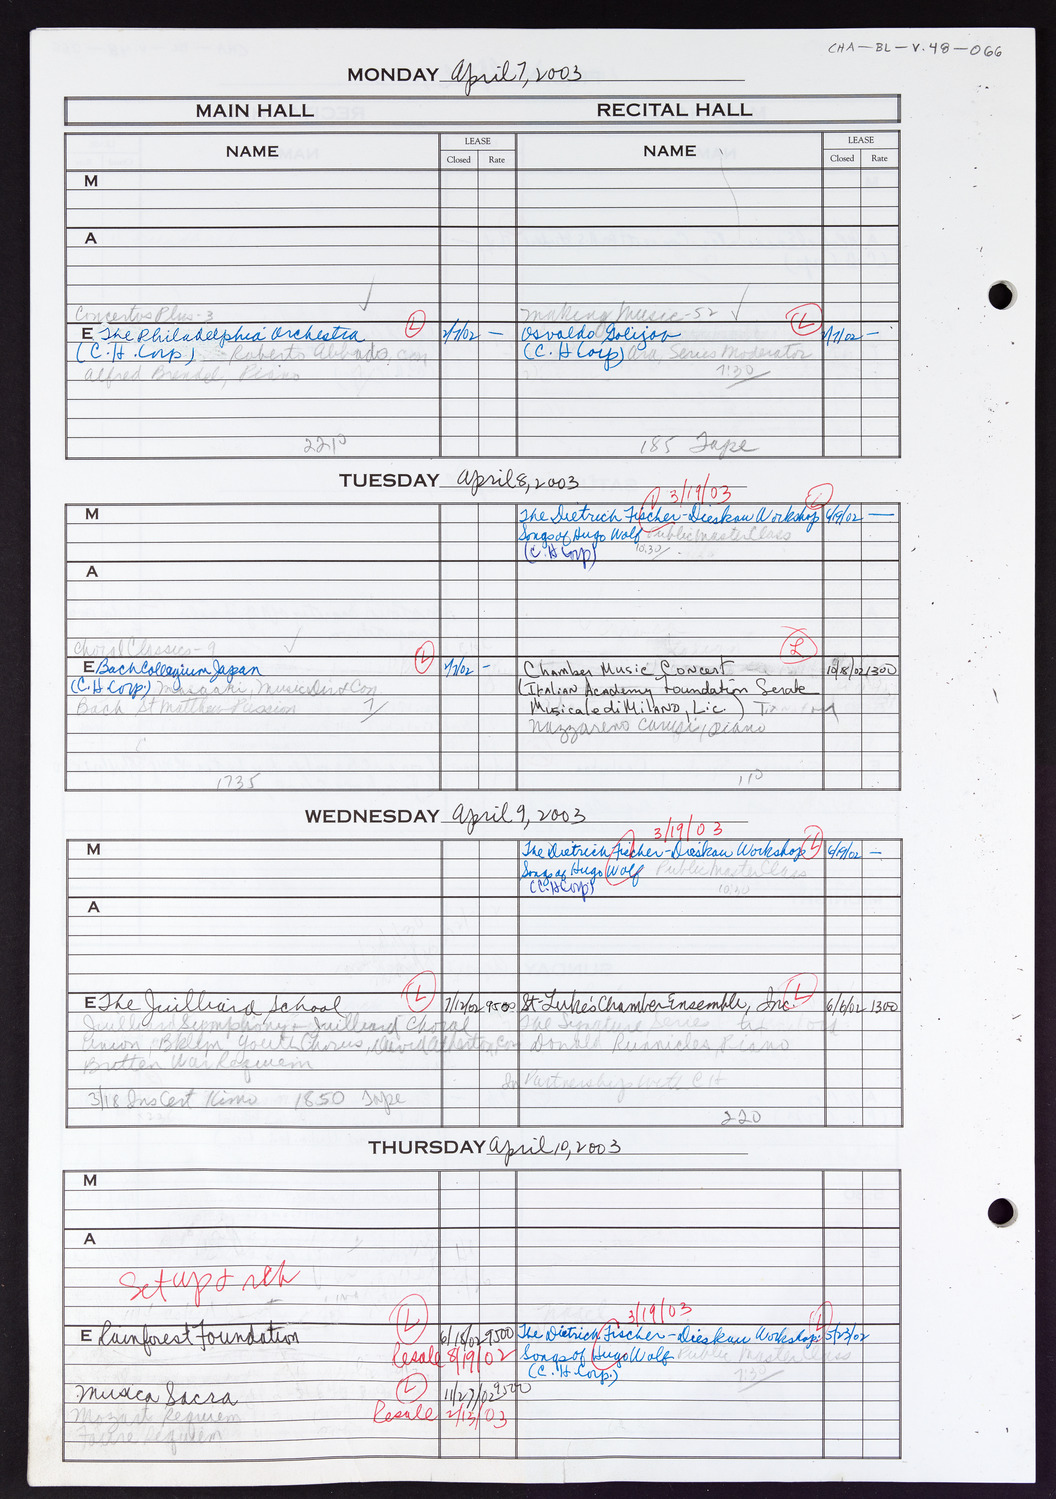 CHA-BL-V.48-066
MONDAY April 7, 2003
MAIN HALL RECITAL HALL
NAME LEASE Closed Rate NAME LEASE Closed Rate
M
A
Concertos Plus-3 Making Music-52
E The Philadelphia Orchestra L 2/7/02 — Osvaldo Golijov L —
(C.H.Corp) Roberto Abbado, con (C.H Corp) Series Moderator
Alfred Brendel, Piano 7:30
2210 185 Tape
TUESDAY April 8, 2003
3/19/03
M The Dietrich Fischer-Dieskau Workshop L 6/19/02 —
Songs of Hugo Wolf Public Master Class
(C.H Corp) 10:30
A
Choral Classics-9
E Bach Collegium Japan L 2/7/02 — Chamber Music Concert L 10/8/02 1300
(C.H Corp.) Masaaki, Music Dir & Con (Italian Academy Foundation Serate
Bach St Matthew Passion 7 Musicale di MILANO, Lic.)
Nazzareno Carusi, piano
1735 110
WEDNESDAY April 9, 2003
3/19/03
M The Dietrich Fischer-Dieskau Workshop L 6/19/02 —
Songs of Hugo Wolf Public Master Class
(C.H Corp) 10:30
A
E The Juilliard School L 7/12/02 9500 St. Luke's Chamber Ensemble, Inc. L 6/6/02 1300
Juilliard Symphony + Juilliard Choral The Signature Series
Union, Bklyn Youth Chorus, David Atherton, Con Donald Runnicles, Piano
Britten War Requiem
In Partnership with CH
3/18 Ins Cert 1850 Tape
220
THURSDAY April 10, 2003
M
A
Set up & reh
3/19/03
E Rainforest Foundation L 6/18/02 9500 The Dietrich Fischer-Dieskau Workshop: L 5/23/02
Resale 8/19/02 Songs of Hugo Wolf Public Master Class
(C.H.Corp.) 7:30
Musica Sacra L 11/27/02 9500
Mozart Requiem Resale 2/13/03
Faure Requiem